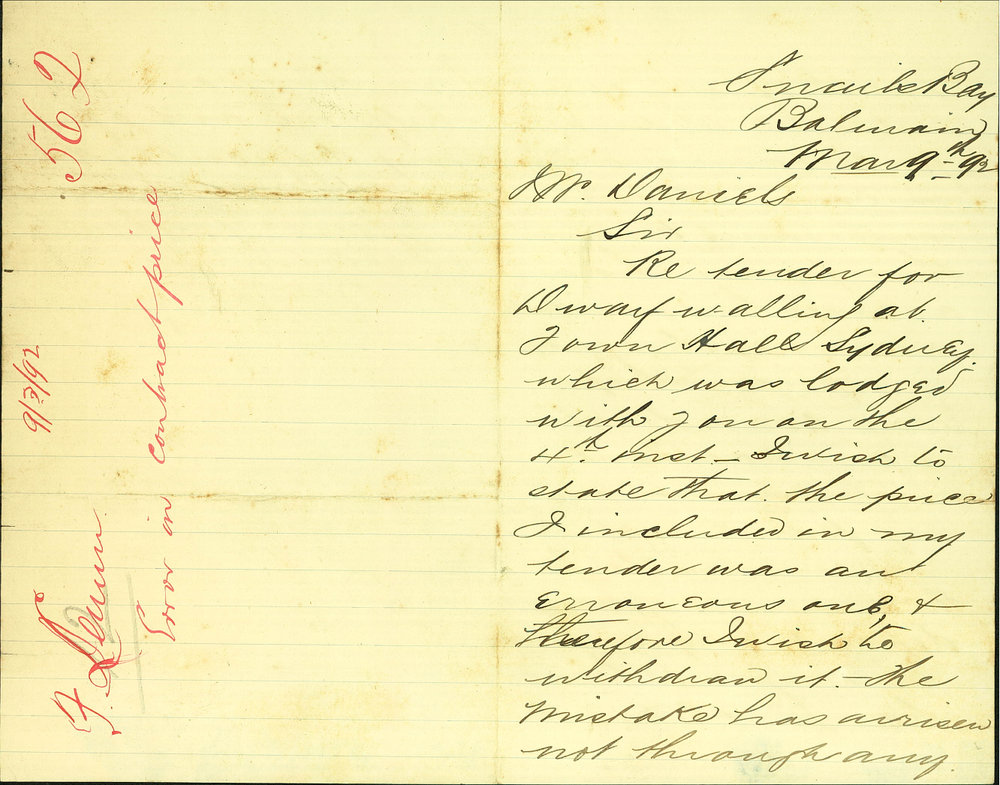 562
9/3/92
F. Denn
Error in contract price
Snails Bay
Balmain
Mar 9th 92
Mr. Daniels
Sir
Re tender for
Dwarf walling at
Town Hall Sydney.
which was lodged
with you on the
4th inst - I wish to
state that the price
I included in my
tender was an
erroneous one, &
therefore I wish to
withdraw it - the
mistake has arrisen
not through any